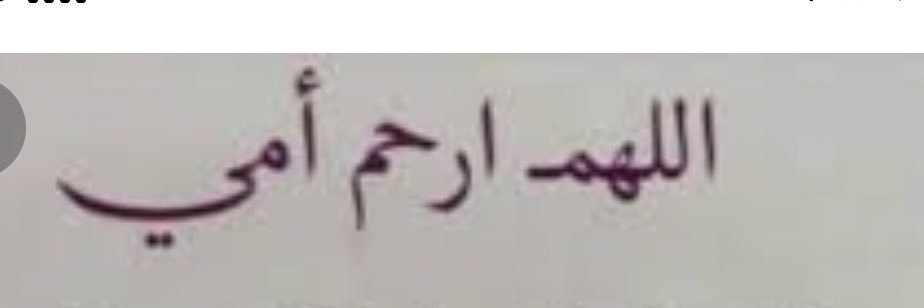 اللهم ارحم أمي